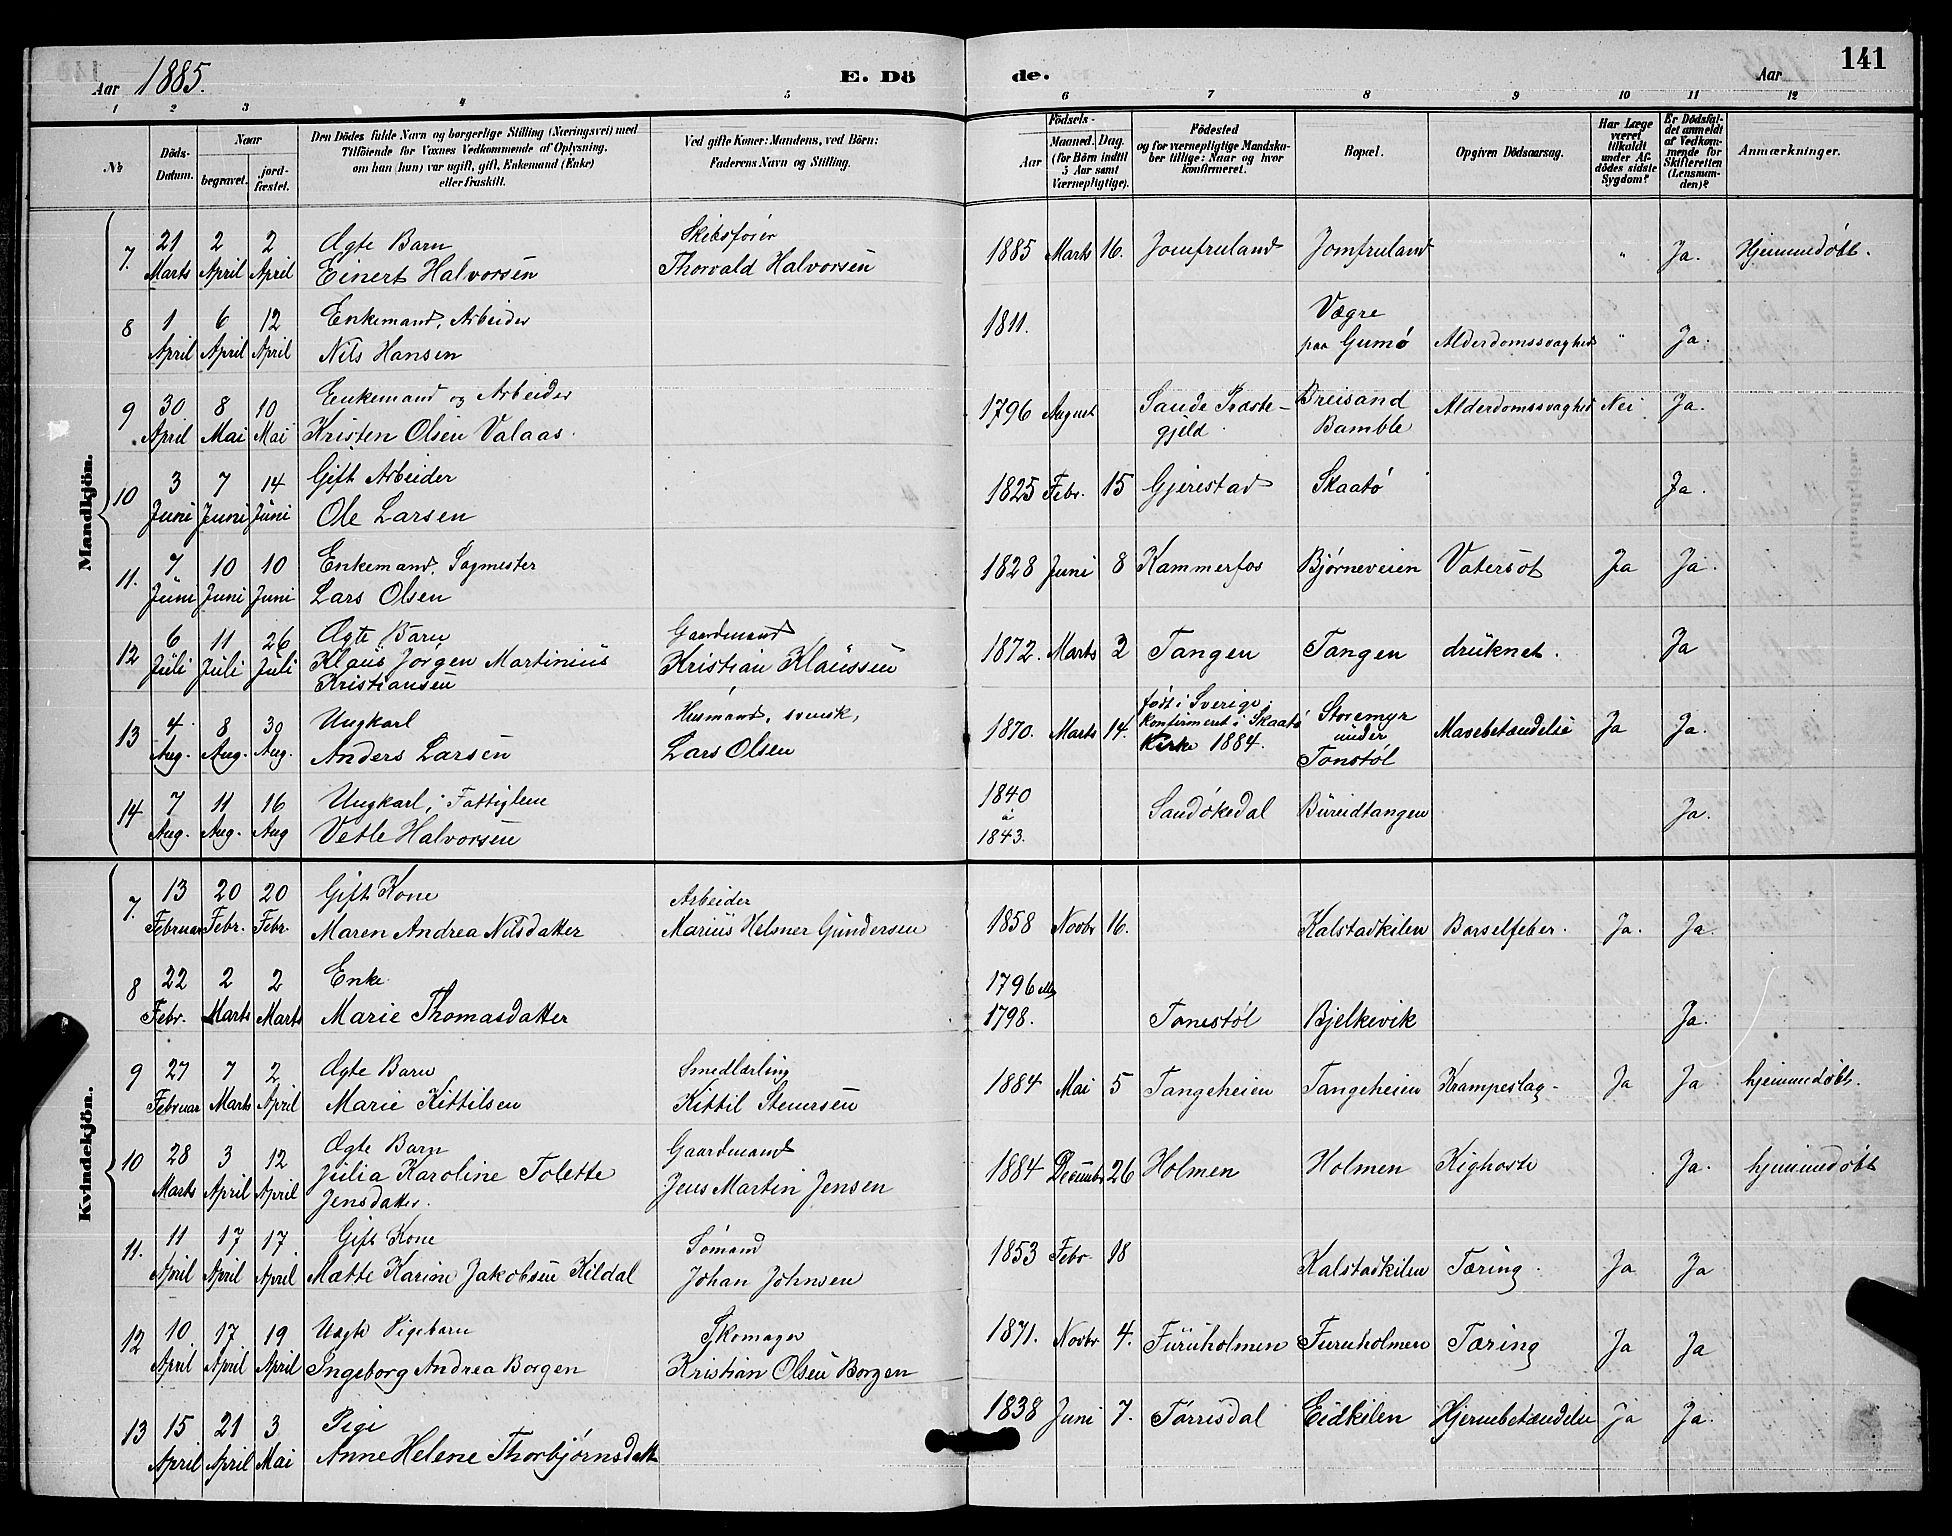 Aar 1885. E. Dö de. Aar 141
1 2 3 4 5 6 7 8 9 10 11 12
№ Döds-Datum. Naar begravet. jord-fæstet. Den Dödes fulde Navn og borgerlige Stilling (Næringsvei) med Tilföiende for Voxnes Vedkommende af Oplysning, om han (hun) var ugift, gift, Enkemand (Enke) eller fraskilt. Ved gifte Koner: Mandens, ved Börn: Faderens Navn og Stilling. Födsels- Aar Maaned. Dag. (for Börn indtil 5 Aar samt Værnepligtige). Födested og for værnepligtige Mandska-ber tillige: Naar og hvor konfirmeret. Bopæl. Opgiven Dödsaarsag. Har Læge været tilkaldt under Af-dödes sidste Sygdom? Er Dödsfal-det anmeldt af Vedkom-mende for Skifteretten (Lensman-den)? Anmærkninger.
Mandkjön.
7. 21 Marts 2 April 2 April Ægte Barn Einert Halvorsen Skibsfører Thorvald Halvorsen 1885 Marts 16. Jomfruland Jomfruland " Ja. Hjemmedøbt.
8 1 April 6 April 12 April Enkemand, Arbeider Nils Hansen 1811. Vægre paa Gumø Alderdomssvaghed " Ja.
9 30 April 8 Mai 10 Mai Enkemand og Arbeider Kristen Olsen Valaas. 1796 August Sande Præste-gjeld. Breisand Bamble Alderdomssvaghed Nei Ja.
10 3 Juni 7 Juni 14 Juni Gift Arbeider Ole Larsen 1825 Febr. 15 Gjerestad Skaatø Ja.
11. 7 Juni 10 Juni 10 Juni Enkemand, Sagmester Lars Olsen 1828 Juni 8 Kammerfos Bjørneveien Vatersot Ja Ja.
12 6 Juli 11 Juli 26 Juli Ægte Barn Klaus Jørgen Martinius Kristiansen Gaardmand Kristian Klaussen 1872. Marts 2 Tangen Tangen druknet. Ja
13 4 Aug. 8 Aug. 30 Aug. Ungkarl Anders Larsen Husmand, svensk, Lars Olsen 1870. Marts 14. født i Sverige, Konfirmeret i Skaatø Kirke 1884. Storemyr under Tonstøl Mavebetændelse Ja Ja.
14 7 Aug. 11 Aug. 16 Aug Ungkarl, Fattiglem Vetle Halvorsen 1840 à 1843. Sandøkedal Bureidtangen Ja.
Kvindekjön.
7. 13 Februar 20 Febr. 20 Febr. Gift Kone Maren Andrea Nilsdatter Arbeider Marius Helmer Gundersen 1858 Novbr 16. Kalstadkilen Barselfeber. Ja. Ja.
8 22 Febr. 2 Marts 2 Marts Enke Marie Thomasdatter 1796 1798. Tonstøl Bjelkevik Ja.
9 27 Februar 7 Marts 2 April Ægte Barn Marie Kittilsen Smedlærling Kittil Stenersen 1884 Mai 5 Tangeheien Tangeheien Krampeslag- Ja Ja hjemmedøbt.
10 28 Marts 3 April 12 April Ægte Barn Julia Karoline Tolette Jensdatter. Gaardmand Jens Martin Jensen 1884 Decembr 26 Holmen Holmen Kighoste Ja. hjemmedøbt
11. 11 April 17 April 17. April Gift Kone Mætte Karine Jakobsen Kildal Sømand Johan Johnsen 1853 Febr 18 Kalstadkilen Tæring. Ja Ja
12 10 April 17 April 19 April Uægte Pigebarn Ingeborg Andrea Borgen Skomager Kristian Olsen Borgen 1871. Novbr 4. Furuholmen Furuholmen Tæring Ja Ja
13 15 April 21 April 3 Mai Pige Anne Helene Thorbjørnsdatt 1838 Juni 7. Tørrisdal Eidkilen Hjernebetændelse Ja Ja.